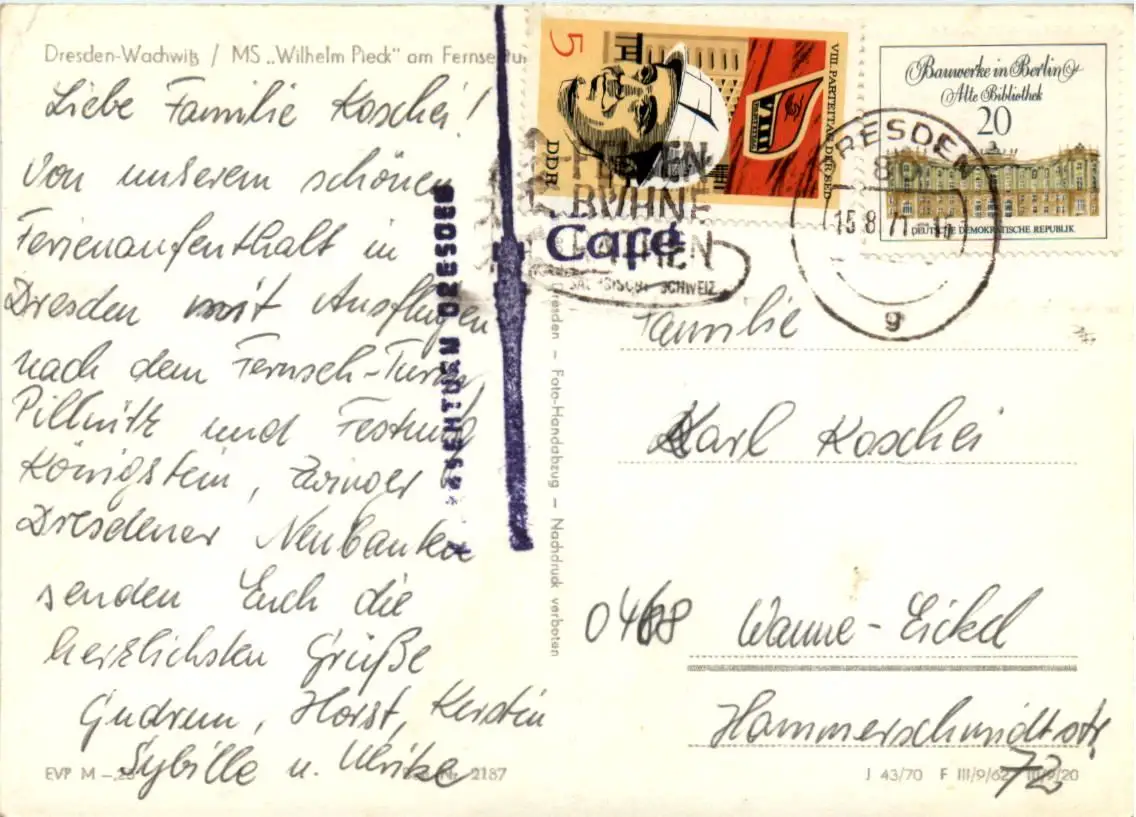 Dresden-Wachwitz / MS „Wilhelm Pieck" am Fernsehturm
Liebe Familie Koschei!
Von unserem schönen
Ferienaufenthalt in
Dresden mit Ausflügen
nach dem Fernsch-Turm,
Pillnitz und Festung
Königstein, Zwinger
Dresdener Neubauten
senden Euch die
herzlichsten Grüße
Gudrun, Horst, Kerstin
Sybille u. Ulrike
EVP M –,25
2187
FERNSEHTURM DRESDEN
Café
5
DDR
VIII. PARTEITAG DER SED
VIII
Bauwerke in Berlin
Alte Bibliothek
20
DEUTSCHE DEMOKRATISCHE REPUBLIK
FELSEN
BÜHNE
RATHEN
SÄCHSISCHE SCHWEIZ
DRESDEN
15.8.71
g
Dresden – Foto-Handabzug – Nachdruck verboten
Familie
Karl Koschei
0468 Wanne-Eickel
Hammerschmidtstr.
72
J 43/70 F III/9/62 III/9/20